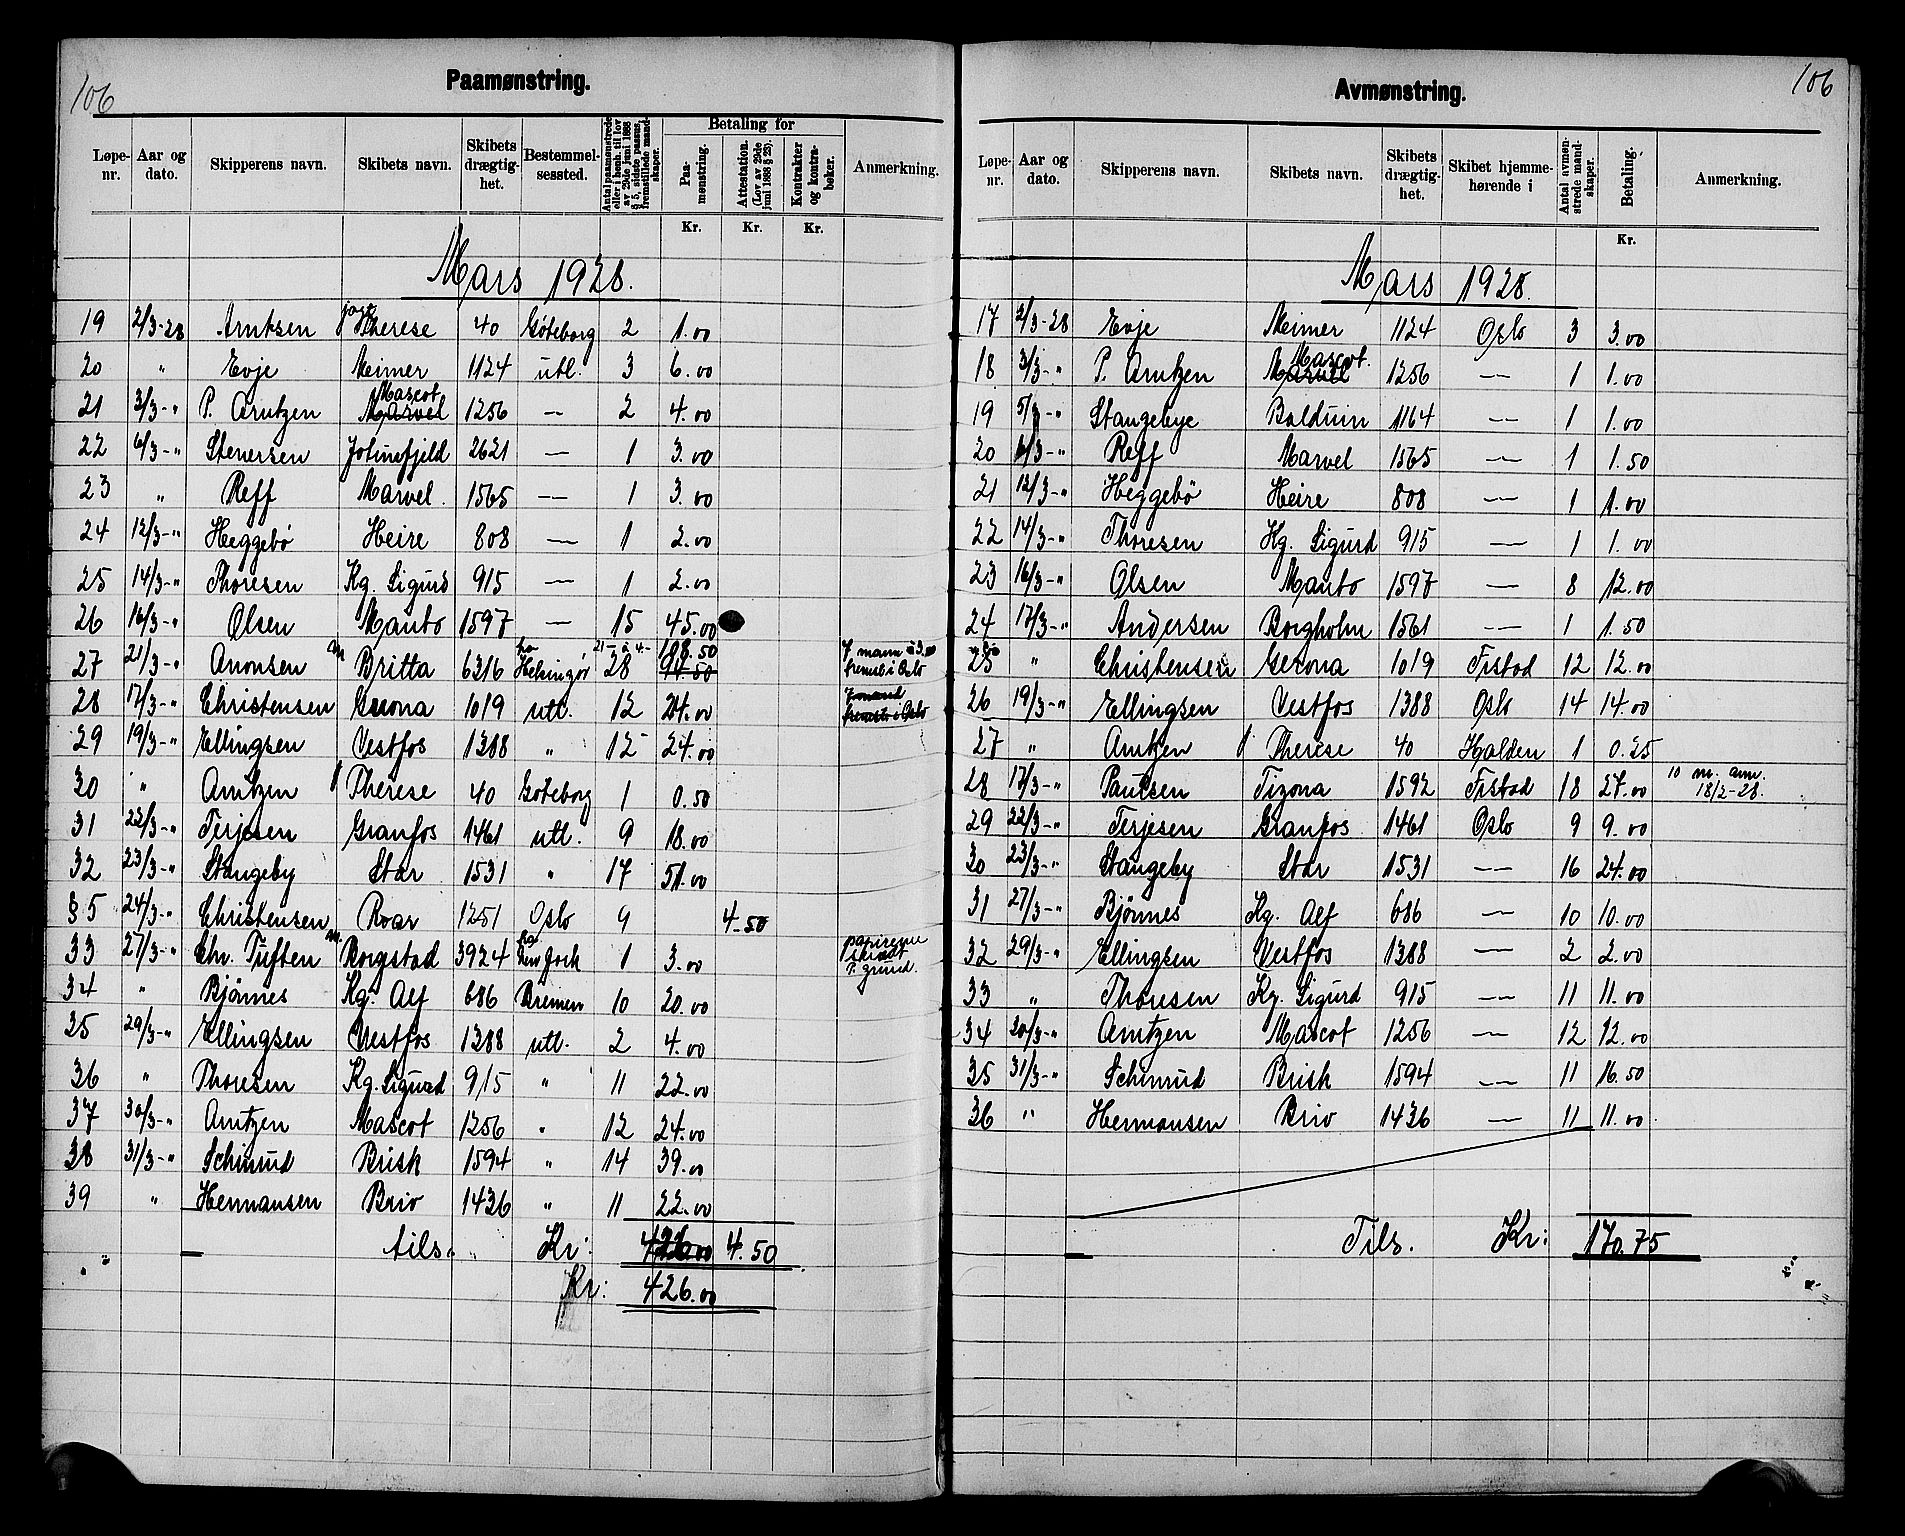 106
Paamønstring.
Løpe-nr. Aar og dato. Skipperens navn. Skibets navn. Skibets drægtig-het. Bestemmel-sessted. Antal paamønstrede eller i henh. til lov av 29de juni 1888 § 5, sidste passus, fremstillede mand-skaper. Betaling for Paa-mønstring. Attestation. (Lov av 29de juni 1888 § 23). Kontrakter og kontra-bøker. Anmerkning.
Kr. Kr. Kr.
Mars 1928.
19 2/3-28 Arntsen jagt Therese 40 Göteborg 2 1.00
20 " Evje Meimer 1124 utl. 3 6.00
21 3/3-" P. Arntzen Mascot Marvel 1256 — 2 4.00
22 6/3-" Stenersen Jotunfjeld 2621 — 1 3.00
23 " Reff Marvel. 1565 — 1 3.00
24 12/3-" Heggebö Heire 808 — 1 2.00
25 14/3-" Thoresen Kg. Sigurd 915 — 1 2.00
26 16/3-" Olsen Manto 1597 — 15 45.00
27 21/3-" Aronsen Britta 6316 Helsingör 28 108.50 94.50 7 mann à 3.00 fremst. i Oslo
28 17/3-" Christensen Gerona 1019 utl. 12 24.00 7 mand fremst. i Oslo
29 19/3-" Ellingsen Vestfos 1388 " 12 24.00
30 " Arntzen Therese 40 Göteborg 1 0.50
31 22/3-" Terjesen Granfos 1461 utl. 9 18.00
32 23/3-" Stangeby Star 1531 " 17 51.00
§5 24/3-" Christensen Roar 1251 Oslo 9 4.50
33 27/3-" Chr. Tuften Borgstad 3924 New York 1 3.00
34 " Bjönnes Kg. Alf 686 Bremen 10 20.00
35 29/3-" Ellingsen Vestfos 1388 utl. 2 4.00
36 " Thoresen Kg. Sigurd 915 " 11 22.00
37 30/3-" Arntzen Mascot 1256 " 12 24.00
38 31/3-" Schinrud Brisk 1594 " 14 39.00
39 " Hermansen Brio 1436 " 11 22.00
tils. Kr: 4.50
Kr: 426.00
106
Avmønstring.
Løpe-nr. Aar og dato. Skipperens navn. Skibets navn. Skibets drægtig-het. Skibet hjemme-hørende i Antal avmøn-strede mand-skaper. Betaling. Anmerkning.
Kr.
Mars 1928.
17 2/3-28 Evje Meimer 1124 Oslo 3 3.00
18 3/3-" P. Arntzen Mascot. Marvel 1256 — 1 1.00
19 5/3-" Stangebye Balduin 1164 — 1 1.00
20 6/3-" Reff Marvel 1565 — 1 1.50
21 12/3-" Heggebö Heire 808 — 1 1.00
22 14/3-" Thoresen Kg. Sigurd 915 — 1 1.00
23 16/3-" Olsen Manto 1597 — 8 12.00
24 17/3-" Andersen Borgholm 1561 — 1 1.50
25 " Christensen Gerona 1019 Frstad 12 12.00
26 19/3-" Ellingsen Vestfos 1388 Oslo 14 14.00
27 " Arntzen Therese 40 Halden 1 0.25
28 17/3-" Paulsen Tizona 1592 Frstad 18 27.00 10 m. ann. 18/2-28.
29 22/3-" Terjesen Granfos 1461 Oslo 9 9.00
30 23/3-" Stangeby Star 1531 — 16 24.00
31 27/3-" Bjönnes Kg. Alf 686 — 10 10.00
32 29/3-" Ellingsen Vestfos 1388 — 2 2.00
33 " Thoresen Kg. Sigurd 915 — 11 11.00
34 30/3-" Arntzen Mascot 1256 — 12 12.00
35 31/3-" Schinrud Brisk 1594 — 11 16.50
36 " Hermansen Brio 1436 — 11 11.00
Tils. Kr: 170.75